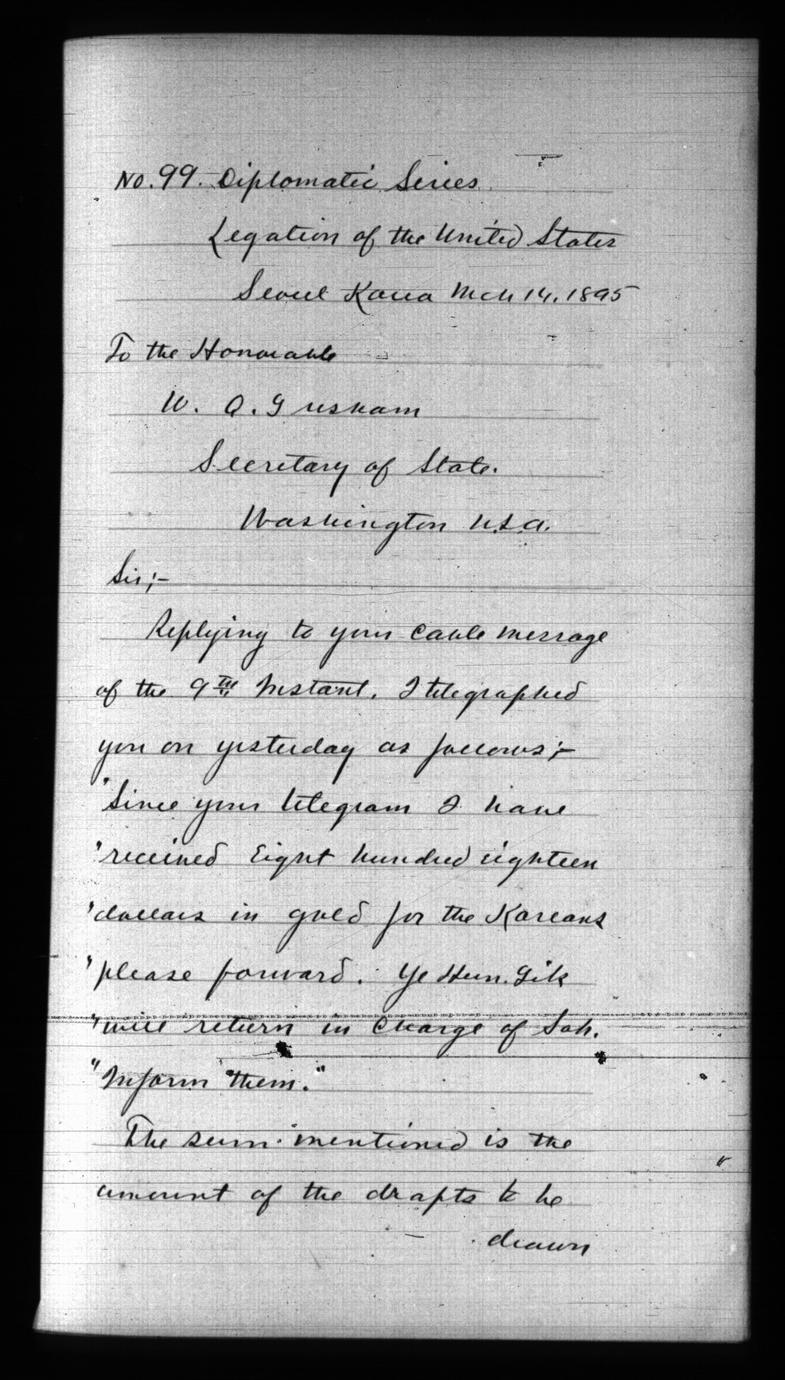 No. 99. Diplomatic Series.
Legation of the United States
Seoul Korea Mch 14, 1895
To the Honorable
W. Q. Gresham
Secretary of State.
Washington U.S.A.
Sir;-
Replying to your cable message
of the 9TH Instant. I telegraphed
you on yesterday as follows;-
"Since your telegram I have
"received Eight hundred eighteen
"dollars in gold for the Koreans
"please forward. Ye Hun. Gik
"will return in charge of Soh.
"Inform them."
The sum mentioned is the
amount of the drafts to be
drawn